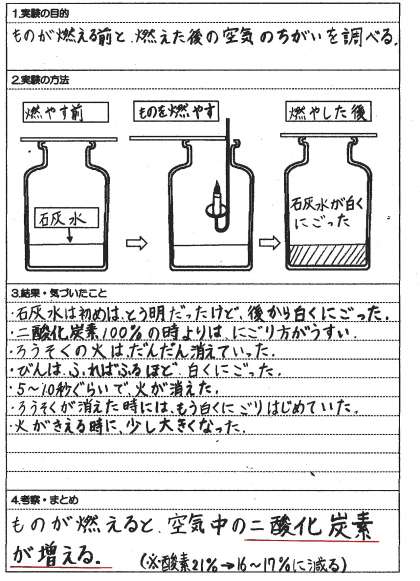 1.実験の目的
ものが燃える前と、燃えた後の空気のちがいを調べる。
2.実験の方法
燃やす前
ものを燃やす
燃やした後
石灰水
石灰水が白く
にごった
3.結果・気づいたこと
・石灰水は初めは、とう明だったけど、後から白くにごった。
・二酸化炭素100%の時よりは、にごり方がうすい。
・ろうそくの火は、だんだん消えていった。
・びんは、ふればふるほど、白くにごった。
・5〜10秒ぐらいで、火が消えた。
・ろうそくが消えた時には、もう白くにごりはじめていた。
・火がきえる時に、少し大きくなった。
4.考察・まとめ
ものが燃えると、空気中の二酸化炭素
が増える。
(※酸素21%→16〜17%に減る)